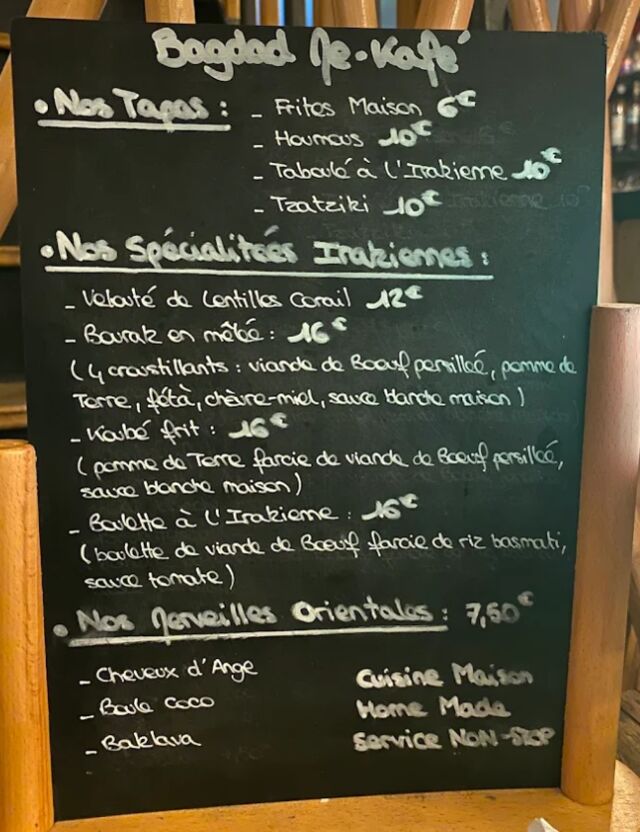 Bagdad Me-Kafé
• Nos Tapas :
- Frites Maison 6€
- Houmous 10€
- Taboulé à l'Irakienne 10€
- Tzatziki 10€
• Nos Spécialiteés Irakiennes :
- Velouté de Lentilles Corail 12€
- Bourak en mêbé : 16€
( 4 croustillants : viande de Boeuf persilleé, pomme de
Terre, féta, chèvre-miel, sauce blanche maison )
- Koubé frit : 16€
( pomme de Terre farcie de viande de Boeuf persilleé,
sauce blanche maison )
- Boulette à l'Irakienne : 16€
( boulette de viande de Boeuf farcie de riz basmati,
sauce tomate )
• Nos Merveilles Orientales : 7,50€
- Cheveux d'Ange
- Boule Coco
- Baklava
Cuisine Maison
Home Made
Service NON-STOP